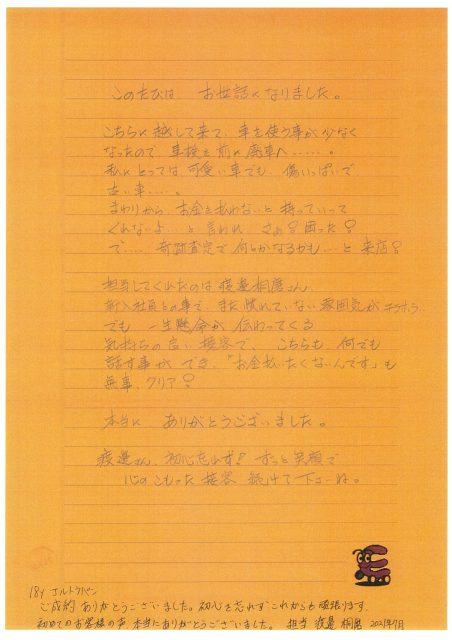 このたびは、お世話になりました。
こちらに越して来て、車を使う事が少なく
なったので、車検を前に廃車へ……。
私にとっては可愛い車でも、傷いっぱいで
古い車……。
まわりから、お金を払わないと持っていって
くれないよ…と言われ、さぁ？困った？
で…、奇跡査定で何とかなるかも…と来店？
担当してくれたのは渡邉桐磨さん。
新入社員との事で、まだ慣れていない雰囲気がチラホラ。
でも一生懸命が伝わってくる
気持ちの良い接客で、こちらも何でも
話す事ができ、「お金払いたくないんです」も
無事、クリア？
本当に ありがとうございました。
渡邉さん、初心忘れず！ずっと笑顔で
心のこもった接客 続けて下さいね。
18y エルトラパン
ご成約ありがとうございました。初心を忘れずこれからも頑張ります
初めてのお客様の声、本当にありがとうございました。 担当 渡邉 桐磨 2021年7月